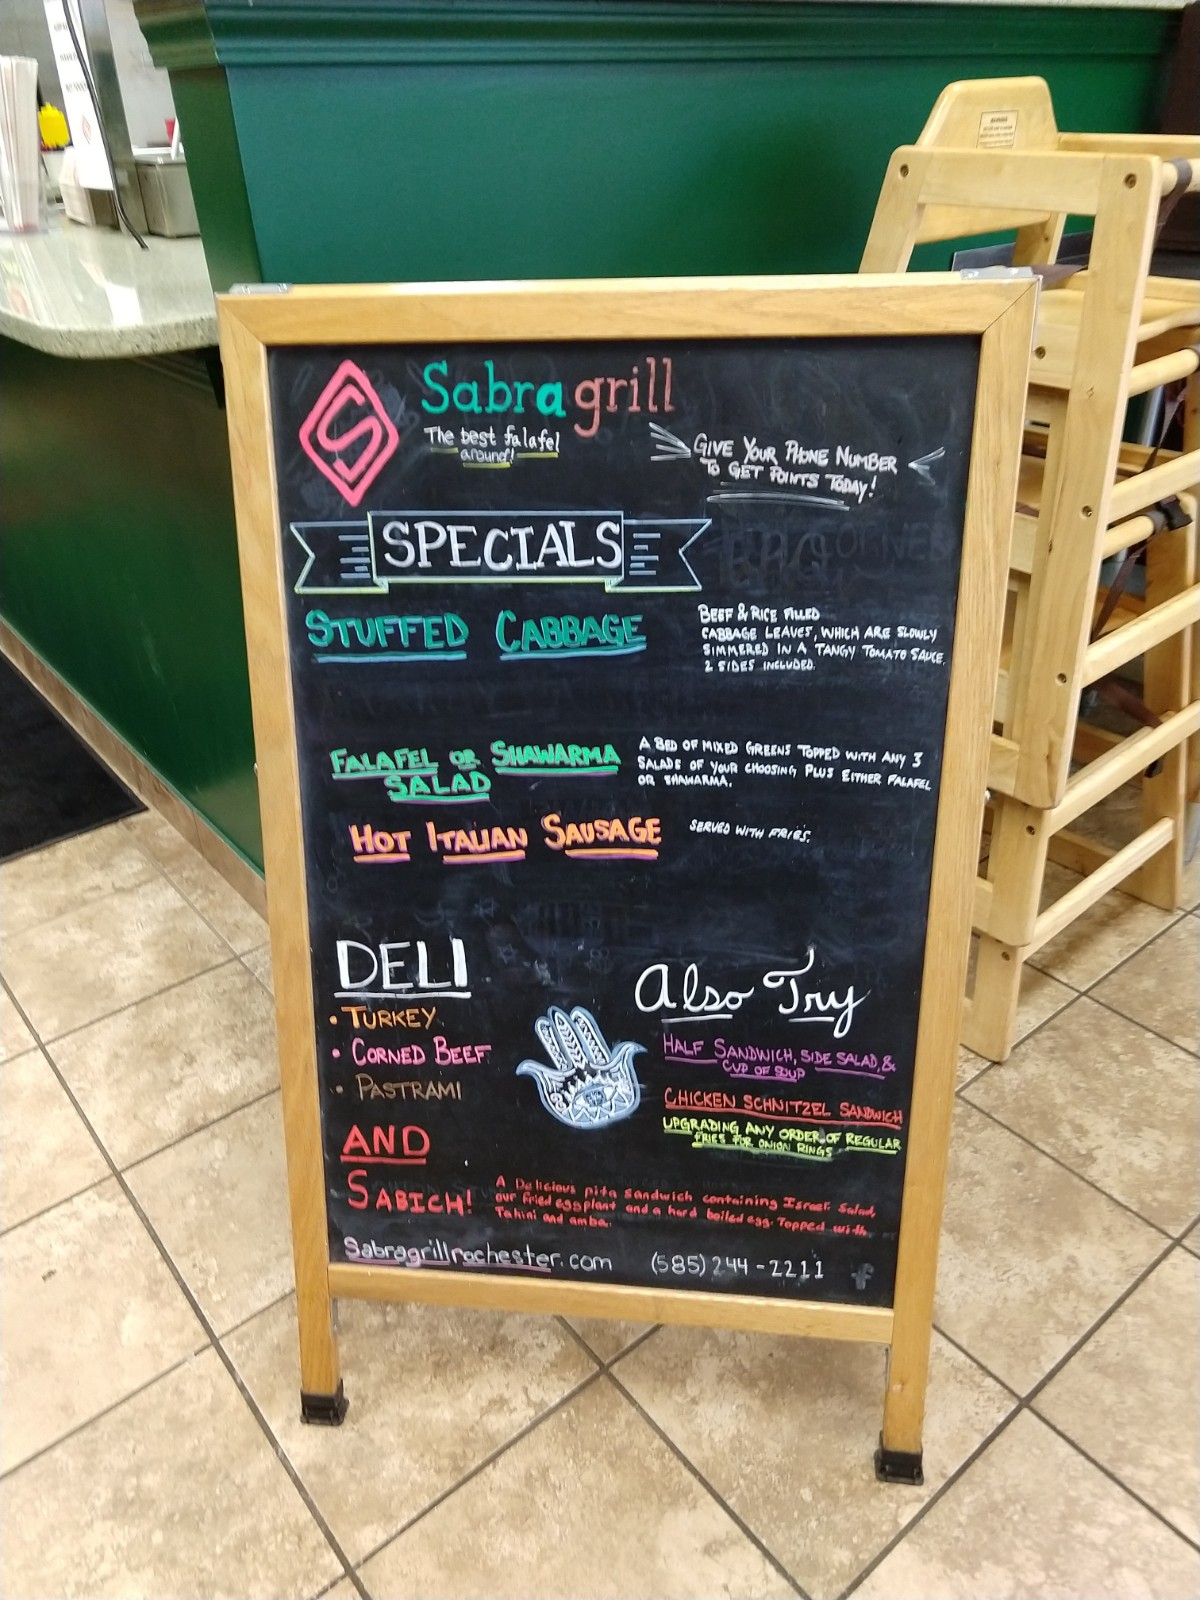 Sabra grill
The best falafel
around!
GIVE YOUR PHONE NUMBER
TO GET POINTS TODAY!
SPECIALS
STUFFED CABBAGE
BEEF & RICE FILLED
CABBAGE LEAVES, WHICH ARE SLOWLY
SIMMERED IN A TANGY TOMATO SAUCE.
2 SIDES INCLUDED.
FALAFEL OR SHAWARMA
SALAD
A BED OF MIXED GREENS TOPPED WITH ANY 3
SALADS OF YOUR CHOOSING PLUS EITHER FALAFEL
OR SHAWARMA.
HOT ITALIAN SAUSAGE
SERVED WITH FRIES.
DELI
• TURKEY
• CORNED BEEF
• PASTRAMI
AND
Also Try
HALF SANDWICH, SIDE SALAD, &
CUP OF SOUP
CHICKEN SCHNITZEL SANDWICH
UPGRADING ANY ORDER OF REGULAR
FRIES FOR ONION RINGS
SABICH!
A Delicious pita sandwich containing Israeli Salad,
our fried eggplant and a hard boiled egg. Topped with
Tahini and amba.
Sabragrillrochester.com (585) 244-2211 f